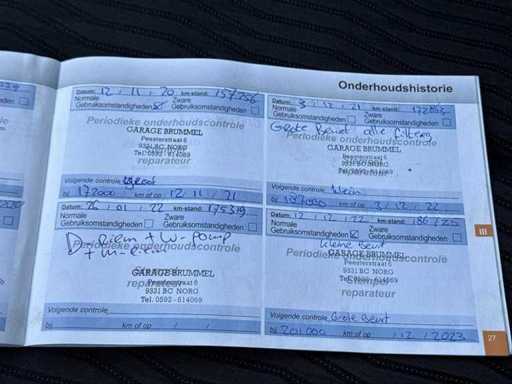 Onderhoudshistorie
Datum: 12 . 11 . 20 km-stand: 157256
Normale Gebruiksomstandigheden ☑ Zware Gebruiksomstandigheden ☐
Periodieke onderhoudscontrole
GARAGE BRUMMEL
Peesterstraat 6
9331 BC NORG
Tel. 0592 - 614069
reparateur
Volgende controle: Groot
bij 172000 km of op 12 / 11 / 21
Datum: 3 . 12 . 21 km-stand:
Normale Gebruiksomstandigheden Zware Gebruiksomstandigheden
Grote Beurt alle filters
Periodieke onderhoudscontrole
GARAGE BRUMMEL
Peesterstraat 6
9331 BC NORG
Tel. 0592 - 614069
reparateur
Volgende controle: Klein
bij 187000 km of op 3 / 12 / 22
Datum: 26 . 01 . 22 km-stand: 175319
Normale Gebruiksomstandigheden ☐ Zware Gebruiksomstandigheden ☐
D-riem + W-Pomp
+ M-riem
Periodieke onderhoudscontrole
GARAGE BRUMMEL
Peesterstraat 6
9331 BC NORG
Tel. 0592 - 614069
reparateur
Volgende controle
bij km of op / /
Datum: 12 . 12 . 22 km-stand: 186725
Normale Gebruiksomstandigheden ☑ Zware Gebruiksomstandigheden ☐
Kleine Beurt
Periodieke onderhoudscontrole
GARAGE BRUMMEL
Peesterstraat 6
9331 BC NORG
Stempel
Tel. 0592 - 614069
reparateur
Volgende controle: Grote Beurt
bij 201.000 km of op / 12 / 2023
III
27